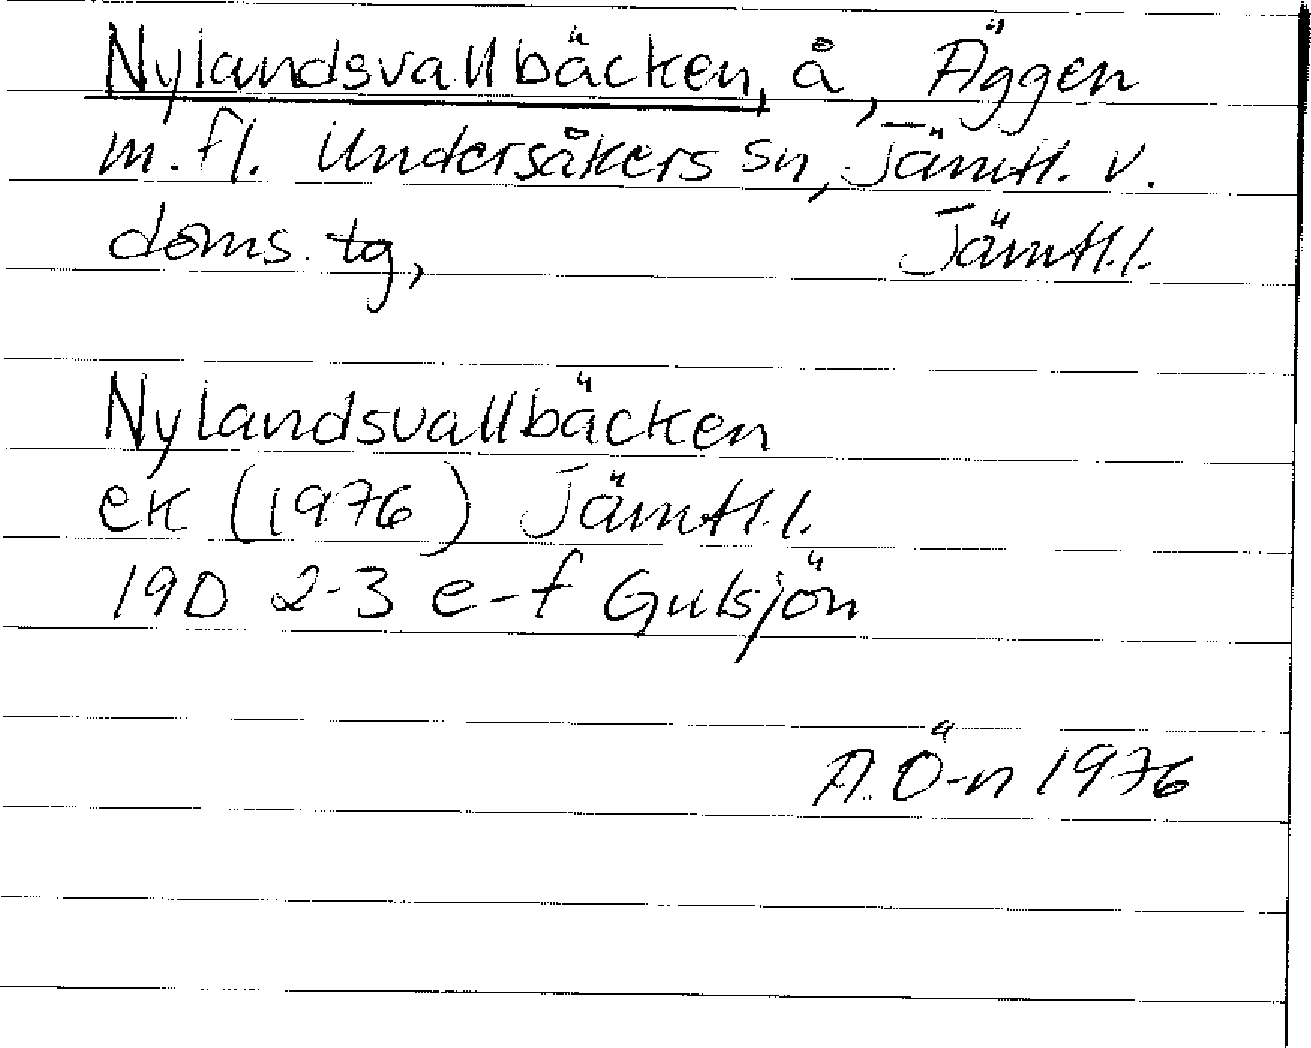 Nylandsvallbäcken, å, Äggen
m. fl. Undersåkers sn, Jämtl. v.
doms. tg, Jämtl. l.
Nylandsvallbäcken
ek (1976) Jämtl. l.
19D 2-3 e-f Gulsjön
A. Ö-n 1976